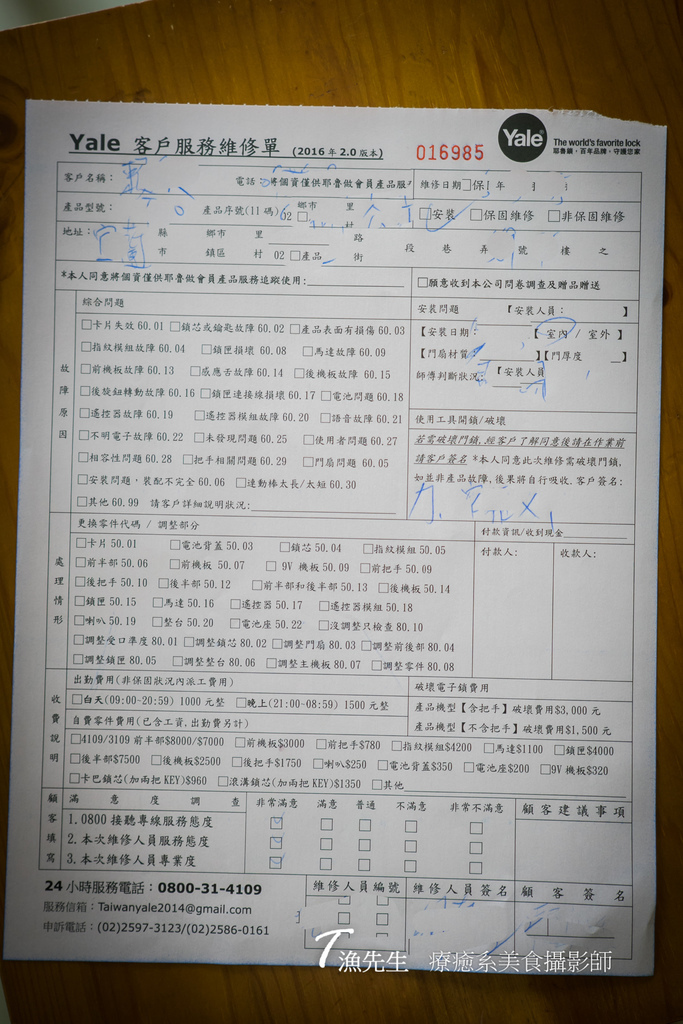 Yale 客戶服務維修單 (2016 年 2.0 版本) 016985 Yale The world's favorite lock
耶魯鎖‧百年品牌‧守護您家
客戶名稱： 電話： 將個資僅供耶魯做會員產品服 維修日期 保 年
產品型號： 產品序號(11 碼) 02 鄉市 里 村 □安裝 □保固維修 □非保固維修
地址： 宜蘭 縣 鄉市 里 路 段 巷 弄 號 樓 之
市 鎮區 村 02 □產品 街
*本人同意將個資僅供耶魯做會員產品服務追蹤使用： □願意收到本公司問卷調查及贈品贈送
故障原因
綜合問題
□卡片失效 60.01 □鎖芯或鑰匙故障 60.02 □產品表面有損傷 60.03
□指紋模組故障 60.04 □鎖匣損壞 60.08 □馬達故障 60.09
□前機板故障 60.13 □感應舌故障 60.14 □後機板故障 60.15
□後旋鈕轉動故障 60.16 □鎖匣連接線損壞 60.17 □電池問題 60.18
□遙控器故障 60.19 □遙控器模組故障 60.20 □語音故障 60.21
□不明電子故障 60.22 □未發現問題 60.25 □使用者問題 60.27
□相容性問題 60.28 □把手相關問題 60.29 □門扇問題 60.05
□安裝問題，裝配不完全 60.06 □連動棒太長/太短 60.30
□其他 60.99 請客戶詳細說明狀況：
安裝問題 【安裝人員： 】
【安裝日期： 【 室內 / 室外 】
【門扇材質 】【門厚度 】
師傅判斷狀況 【安裝人員
使用工具開鎖/破壞
若需破壞門鎖,經客戶了解同意後請在作業前
請客戶簽名 *本人同意此次維修需破壞門鎖,
如並非產品故障,後果將自行吸收.客戶簽名：
處理情形
更換零件代碼 / 調整部分
□卡片 50.01 □電池背蓋 50.03 □鎖芯 50.04 □指紋模組 50.05
□前半部 50.06 □前機板 50.07 □ 9V 機板 50.09 □前把手 50.09
□後把手 50.10 □後半部 50.12 □前半部和後半部 50.13 □後機板 50.14
□鎖匣 50.15 □馬達 50.16 □遙控器 50.17 □遙控器模組 50.18
□喇叭 50.19 □整台 50.20 □電池座 50.22 □沒調整只檢查 80.10
□調整受口準度 80.01 □調整鎖芯 80.02 □調整門扇 80.03 □調整前後部 80.04
□調整鎖匣 80.05 □調整整台 80.06 □調整主機板 80.07 □調整零件 80.08
付款資訊/收到現金
付款人： 收款人：
收費說明
出勤費用(非保固狀況內派工費用)
□白天(09:00~20:59) 1000 元整 □晚上(21:00~08:59) 1500 元整
破壞電子鎖費用
產品機型【含把手】破壞費用$3,000 元
產品機型【不含把手】破壞費用$1,500 元
自費零件費用(已含工資,出勤費另計)
□4109/3109 前半部$8000/$7000 □前機板$3000 □前把手$780 □指紋模組$4200 □馬達$1100 □鎖匣$4000
□後半部$7500 □後機板$2500 □後把手$1750 □喇叭$250 □電池背蓋$350 □電池座$200 □9V 機板$320
□卡巴鎖芯(加兩把 KEY)$960 □滾溝鎖芯(加兩把 KEY)$1350 □其他
顧客填寫
滿 意 度 調 查 非常滿意 滿意 普通 不滿意 非常不滿意 顧客建議事項
1.0800 接聽專線服務態度
2.本次維修人員服務態度
3.本次維修人員專業度
24 小時服務電話：0800-31-4109 維修人員編號 維修人員簽名 顧 客 簽 名
服務信箱：Taiwanyale2014@gmail.com
申訴電話：(02)2597-3123/(02)2586-0161
漁先生 療癒系美食攝影師